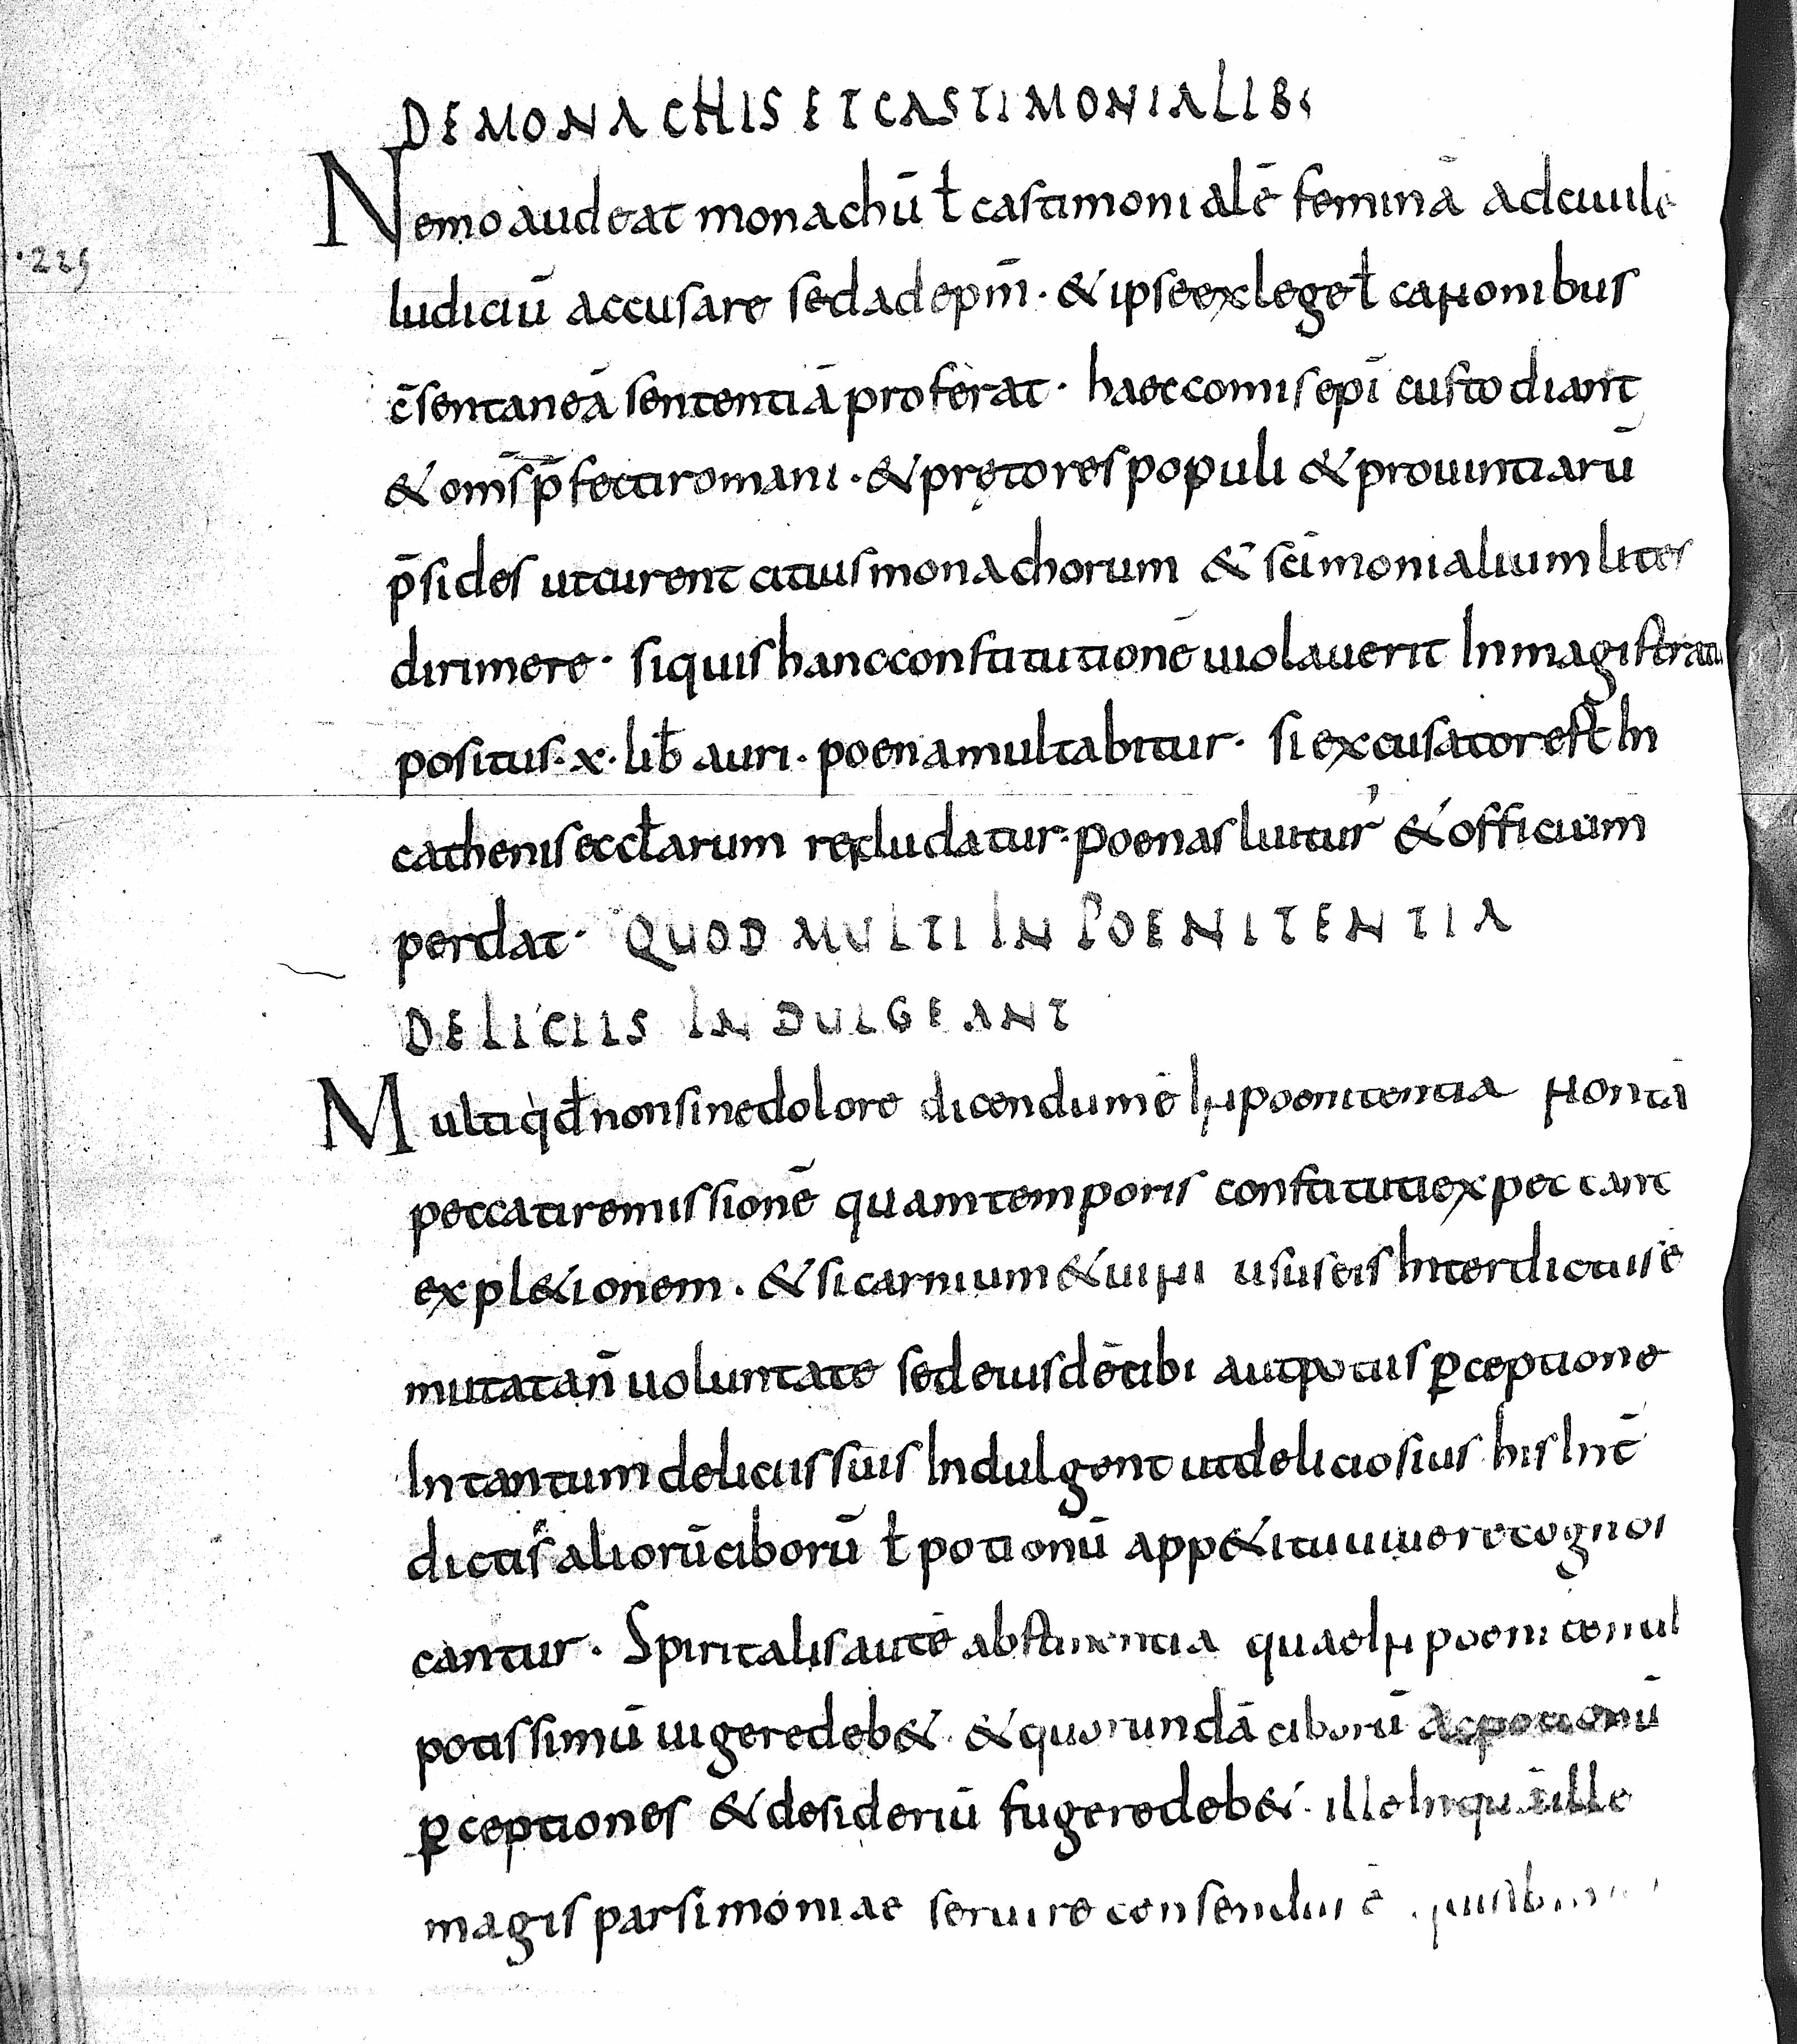 DE MONACHIS ET CASTIMONIALIB;
Nemo audeat monachū ł castimonialē feminā ad ciuile
Iudiciū accusare sed ad epm̄ · & ipse ex lege ł canonibus
·225
c̄sentaneā sententiā proferat · haec comis epī custodiant
& om̄s p̄fecti romani · & pretores populi & prouintiarū
p̄sides ut curent citius monachorum & sc̄imonialium lites
dirimere · si quis hanc constitutionē uiolauerit In magistratu
positus · x · lib̄ auri · poena multabitur · si excusator est In
cathenis eccłarum recludatur · poenas luitur & officium
perdat · QUOD MULTI IN POENITENTIA
DELICIIS INDULGEANT
Multi qđ non sine dolore dicendum ē In poenitentia non tā
peccati remissionē quam temporis constituti expectant
expl&ionem · & si carnium & uini usus eis Interdictus ē
mutatan̄ uoluntate sed eiusdē cibi aut potus ꝑceptione
In tantum deliciis suis Indulgent ut deliciosius his Int̄
dictis aliorū ciborū ł potionū app&itu uiuere cognos
cantur · Spiritalis autē abstinentia quae In poenitentib
potissimū uigere deb& · & quorundā ciborū ac potionū
ꝑceptiones & desideriū fugere deb& · ille Inquā ille
magis parsimoniae seruire consendus ē